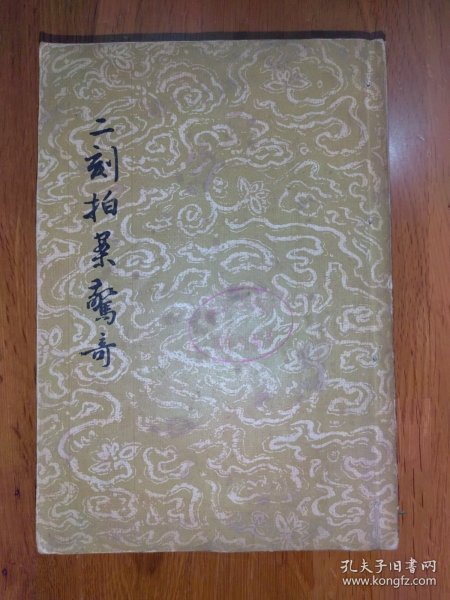 二刻拍案驚奇
孔夫子旧书网
www.kongfz.com